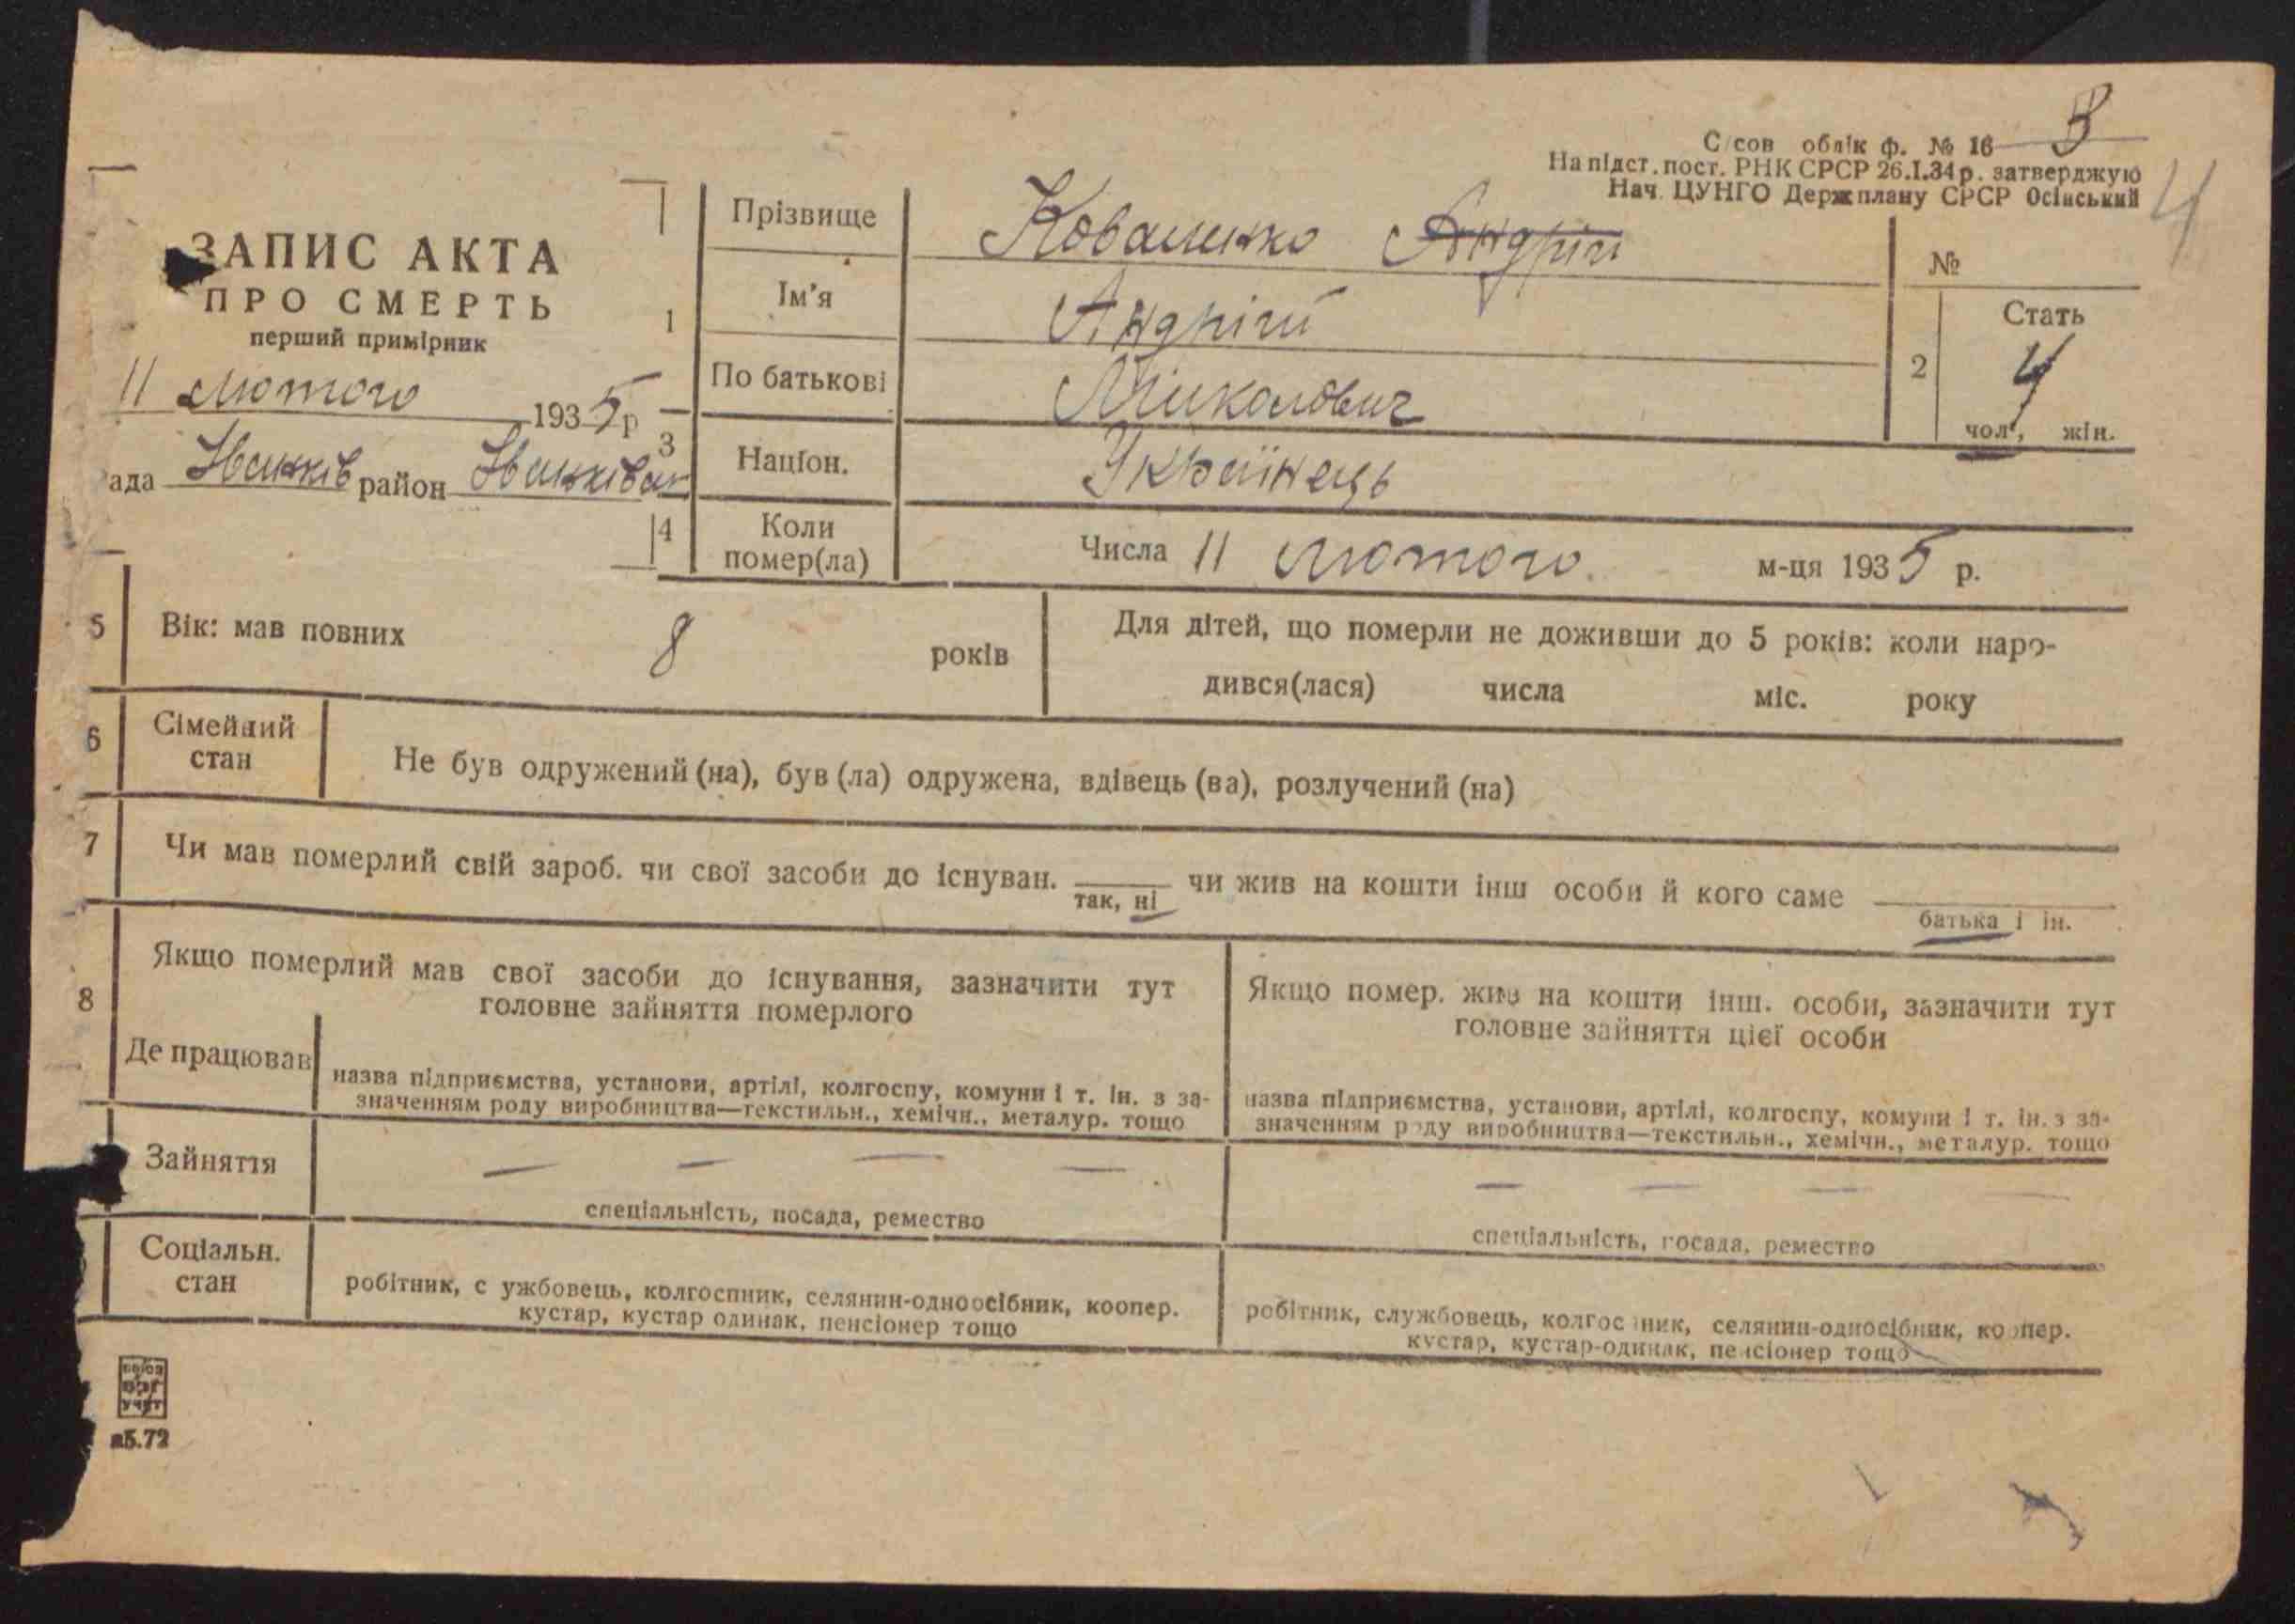 С/сов облік ф. № 16 3
На підст. пост. РНК СРСР 26.I.34 р. затверджую
Нач. ЦУНГО Держплану СРСР Осінський
4
ЗАПИС АКТА
ПРО СМЕРТЬ
перший примірник
11 Лютого 1935 р
ада Іванків район Іванківськ
1 Прізвище Коваленко Андрій
Ім'я Андрій
По батькові Миколович
№
2 Стать
Ч
чол., жін.
3 Націон. Українець
4 Коли помер(ла) Числа 11 Лютого м-ця 1935 р.
5 Вік: мав повних 8 років
Для дітей, що померли не доживши до 5 років: коли наро-
дився(лася) числа міс. року
6 Сімейний стан Не був одружений (на), був (ла) одружена, вдівець (ва), розлучений (на)
7 Чи мав померлий свій зароб. чи свої засоби до існуван. чи жив на кошти інш особи й кого саме
так, ні батька і ін.
8 Якщо померлий мав свої засоби до існування, зазначити тут
головне зайняття померлого
Якщо помер. жив на кошти інш. особи, зазначити тут
головне зайняття цієї особи
Де працював
назва підприємства, установи, артілі, колгоспу, комуни і т. ін. з за-
значенням роду виробництва—текстильн., хемічн., металур. тощо
назва підприємства, установи, артілі, колгоспу, комуни і т. ін. з за-
значенням роду виробництва—текстильн., хемічн., металур. тощо
Зайняття — — — —
спеціальність, посада, ремество
— — — —
спеціальність, посада, ремество
Соціальн. стан
робітник, с ужбовець, колгоспник, селянин-одноосібник, коопер.
кустар, кустар одинак, пенсіонер тощо
робітник, службовець, колгос ник, селянин-односібник, коопер.
кустар, кустар-одинак, пенсіонер тощо
союз
орг
учет
а5.72